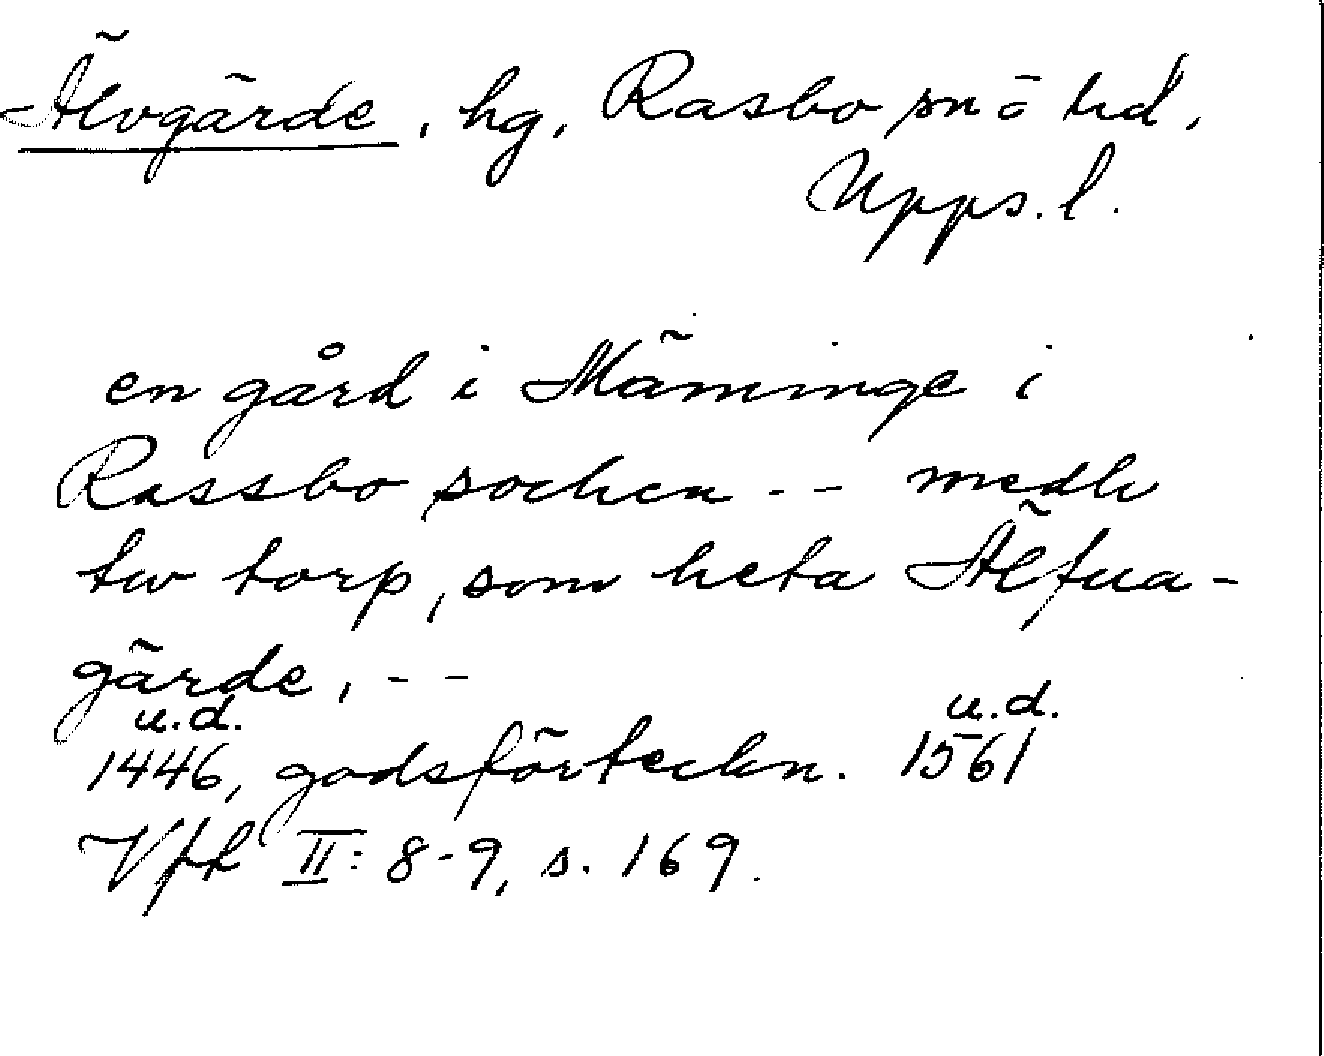 Älvgärde, hg, Rasbo sn o hd,
Upps. l.
en gård i Mäminge i
Rassbo sochen -- medh
tw torp, som heta Älfua-
gärde, --
u.d. u.d.
1446, godsförteckn. 1561
II: 8-9, s. 169.